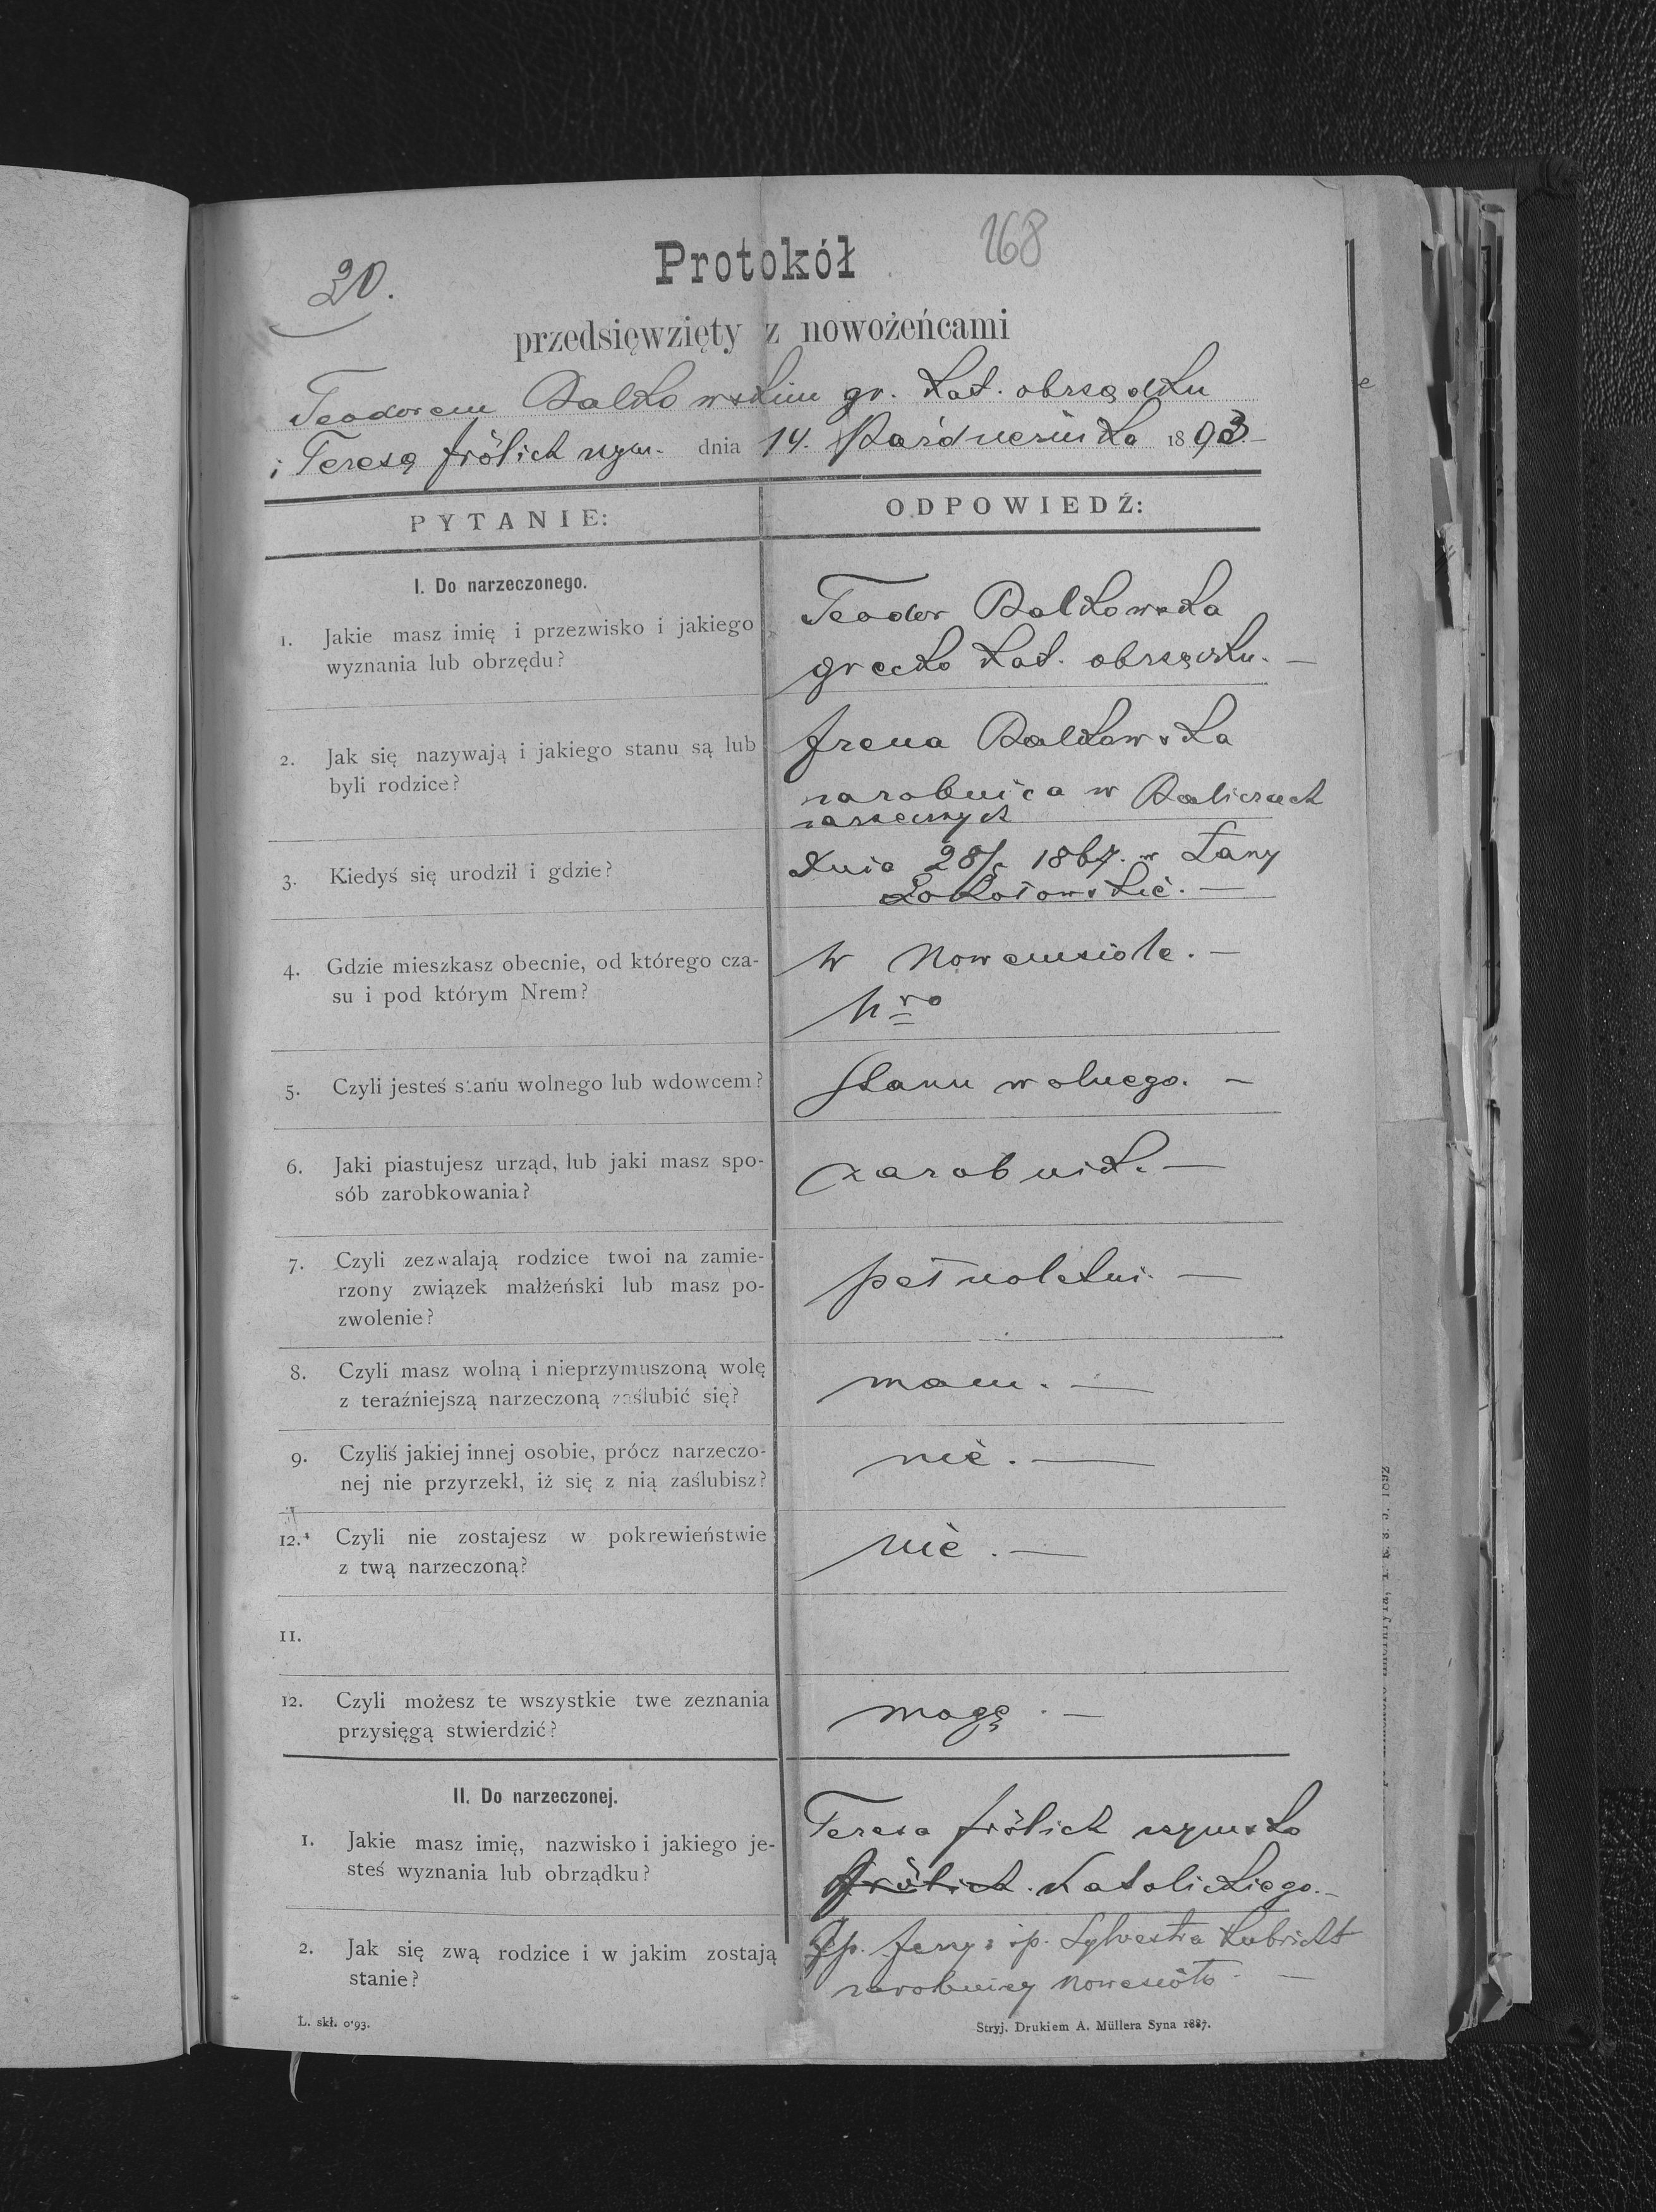 20.
168
Protokół
przedsięwzięty z nowożeńcami
Teodorem Balkowskim gr. kat. obrządku
i Teresą Frölich rzym. dnia 14. Października 1893.—
PYTANIE:
ODPOWIEDŹ:
I. Do narzeczonego.
1. Jakie masz imię i przezwisko i jakiego
wyznania lub obrzędu?
Teodor Balkowska
grecko kat. obrządku. —
2. Jak się nazywają i jakiego stanu są lub
byli rodzice?
Irena Balkowska
zarobnica w Baliczach
zarzecznych
3. Kiedyś się urodził i gdzie?
dnia 28/ 1867. w Łany
Sokołowskie. —
4. Gdzie mieszkasz obecnie, od którego cza-
su i pod którym Nrem?
W Nowemsiole. —
Nro
5. Czyli jesteś stanu wolnego lub wdowcem?
Stanu wolnego. —
6. Jaki piastujesz urząd, lub jaki masz spo-
sób zarobkowania?
zarobnik. —
7. Czyli zezwalają rodzice twoi na zamie-
rzony związek małżeński lub masz po-
zwolenie?
pełnoletni. —
8. Czyli masz wolną i nieprzymuszoną wolę
z teraźniejszą narzeczoną zaślubić się?
mam. —
9. Czyliś jakiej innej osobie, prócz narzeczo-
nej nie przyrzekł, iż się z nią zaślubisz?
nie. —
12. Czyli nie zostajesz w pokrewieństwie
z twą narzeczoną?
nie. —
11.
12. Czyli możesz te wszystkie twe zeznania
przysięgą stwierdzić?
mogę. —
II. Do narzeczonej.
1. Jakie masz imię, nazwisko i jakiego je-
steś wyznania lub obrządku?
Teresa Frölich rzymsko
Frölich. Katolickiego. —
2. Jak się zwą rodzice i w jakim zostają
stanie?
śp. Jerzy i śp. Sylvestra
zarobnicy Nowesioło. —
L. skł. 0·93.
Stryj. Drukiem A. Müllera Syna 1887.